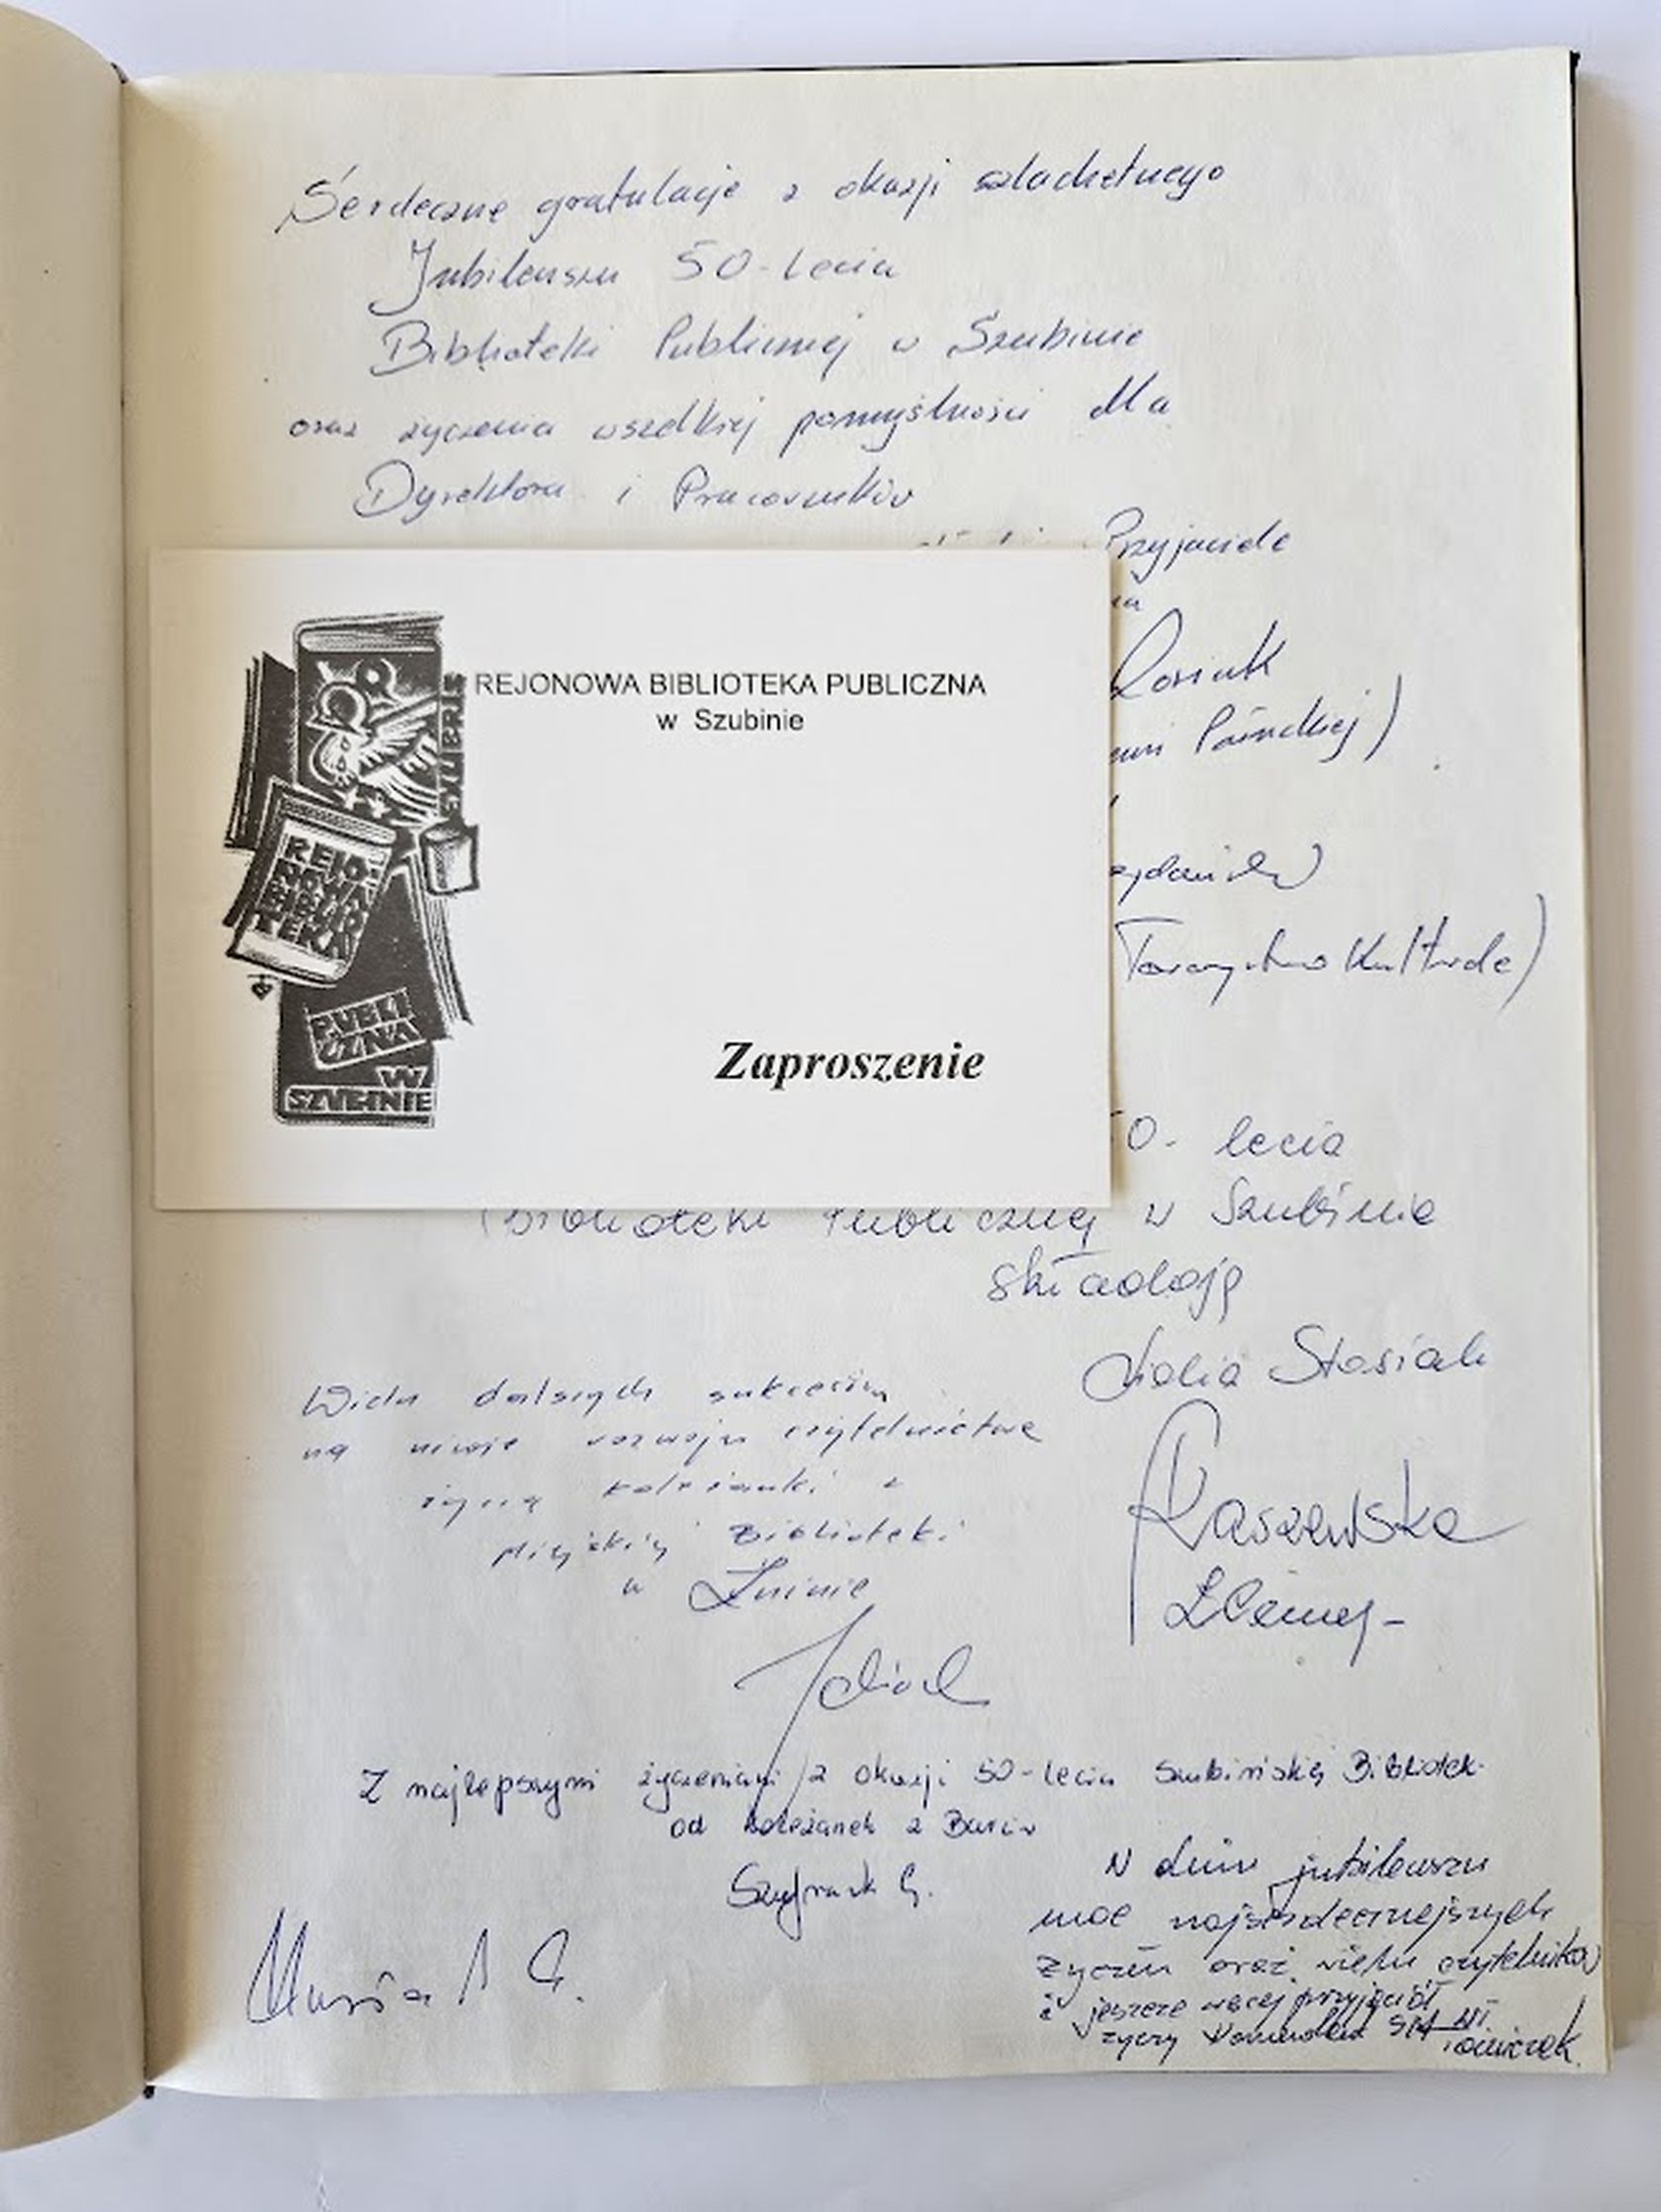 Serdeczne gratulacje z okazji szlachetnego
Jubileuszu 50-lecia
Biblioteki Publicznej w Szubinie
oraz życzenia wszelkiej pomyślności dla
Dyrektora i Pracowników
Przyjaciele
REJONOWA BIBLIOTEKA PUBLICZNA
w Szubinie
REJO-
NOWA
BIBLIO
TEKA
PUBLI
CZNA
W
SZUBINIE
Zaproszenie
Towarzystwo Kulturalne)
0- lecia
Biblioteki Publicznej w Szubinie
składają
Stasiak
Wielu dalszych sukcesów
na niwie rozwoju czytelnictwa
życzą koleżanki z
Miejskiej Biblioteki
w Żninie
Kaszewska
Z najlepszymi życzeniami z okazji 50-lecia Szubińskiej Bibliotek
od koleżanek z Barcin
G.
W dniu jubileuszu
moc najserdeczniejszych
życzeń oraz wielu czytelników
i jeszcze więcej przyjaciół
życzy Komendant SM